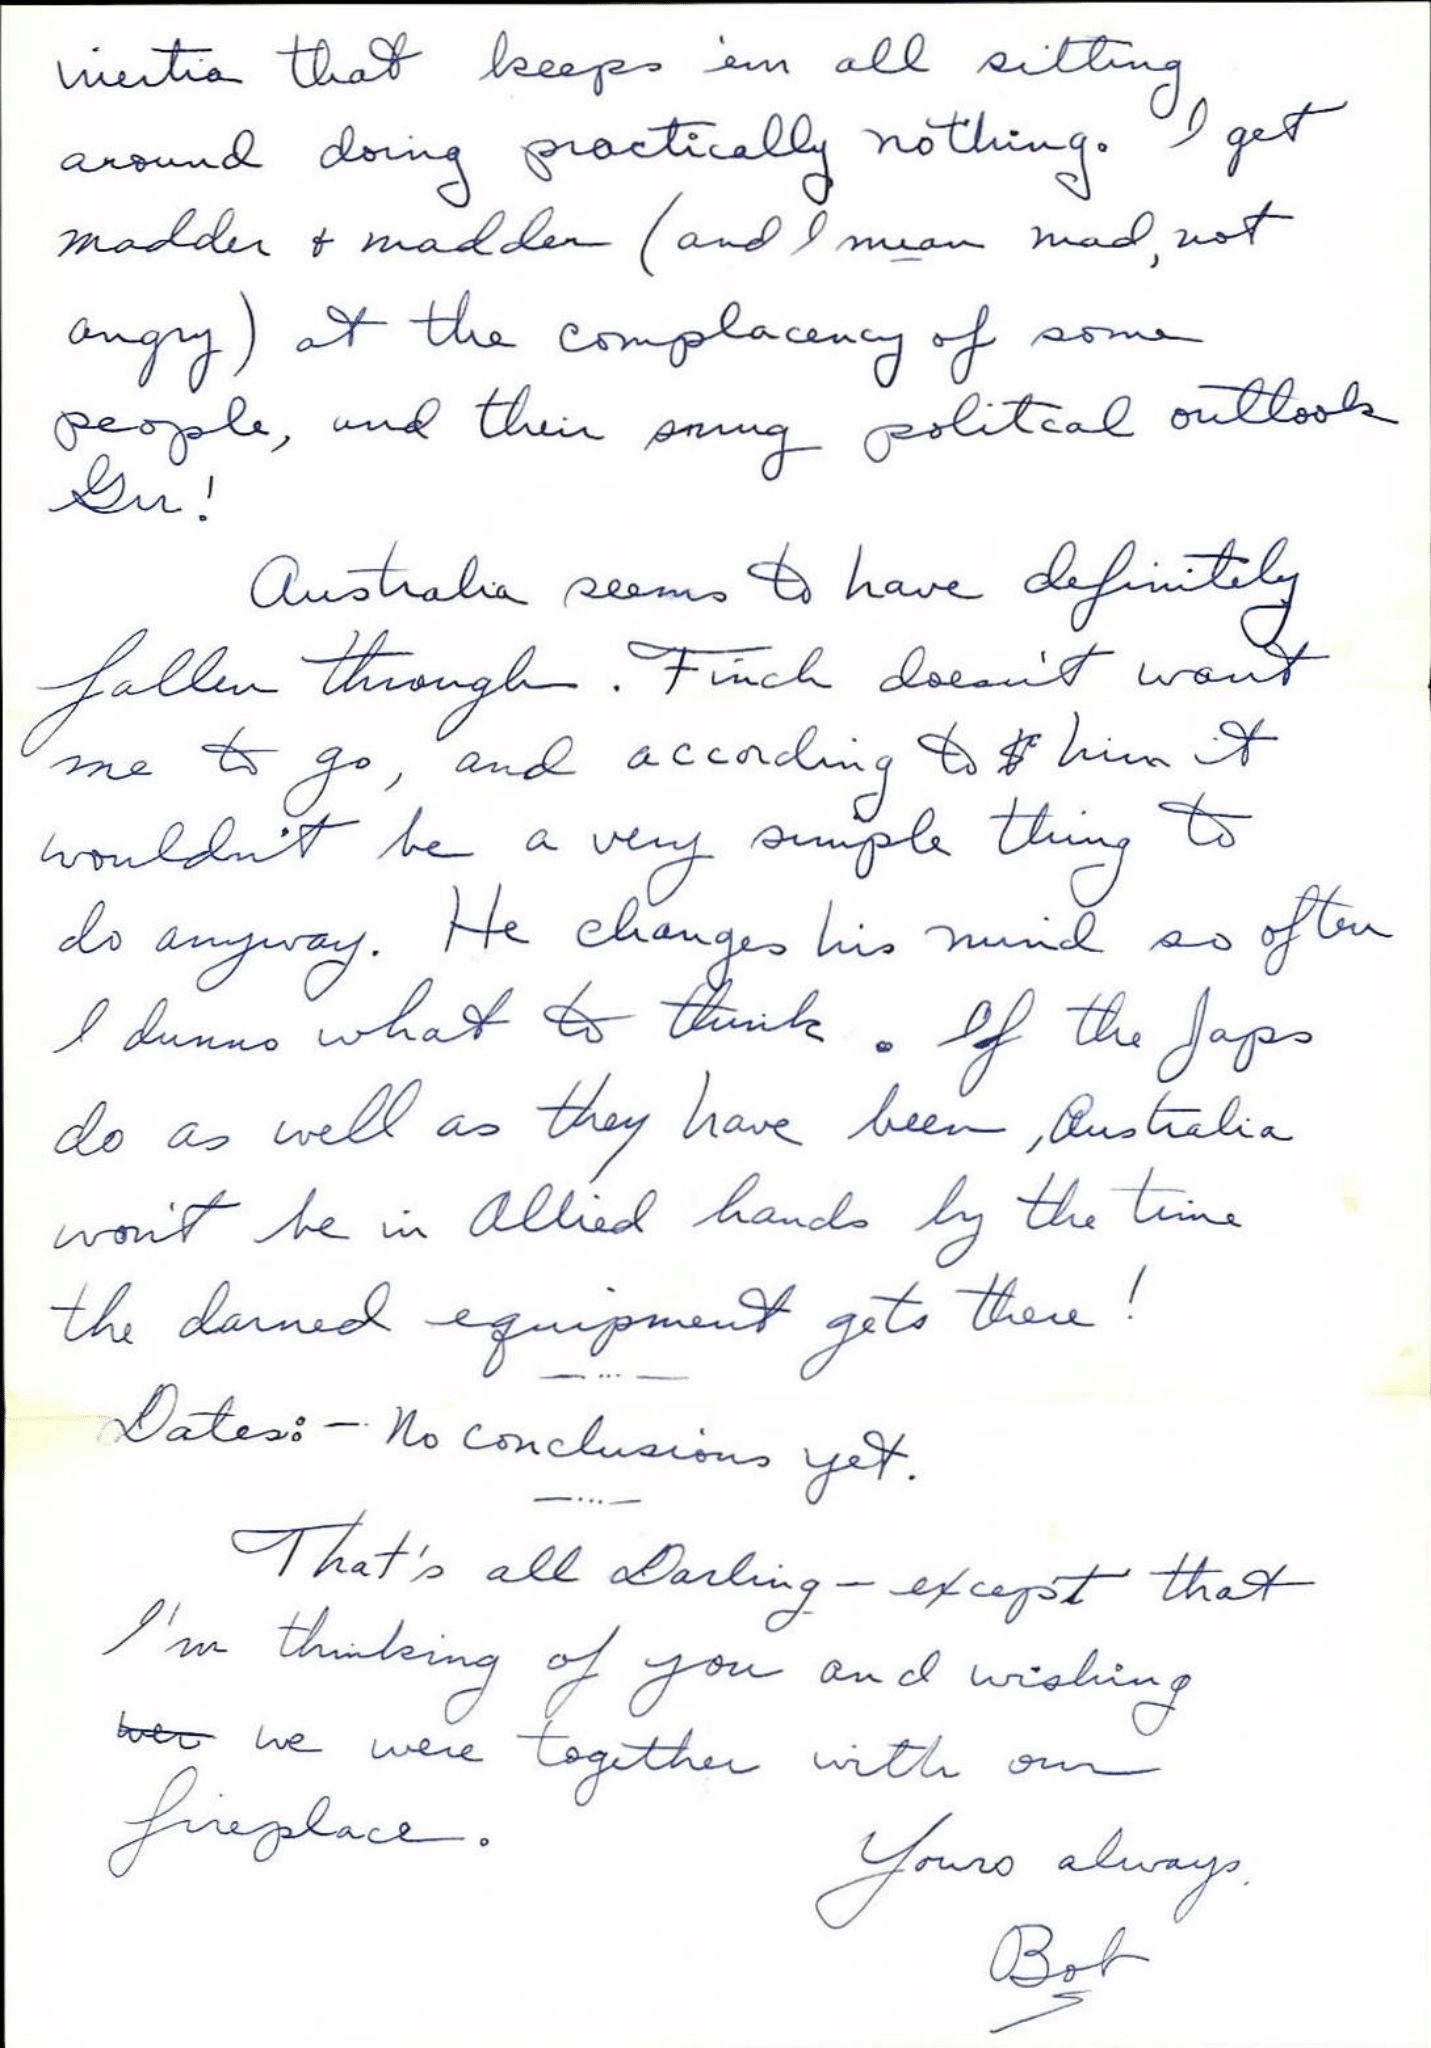 inertia that keeps 'em all sitting
around doing practically nothing. I get
madder & madder (and I mean mad, not
angry) at the complacency of some
people, and their smug politcal outlook
Grr!
Australia seems to have definitely
fallen through. Finch doesn't want
me to go, and according to him it
wouldn't be a very simple thing to
do anyway. He changes his mind so often
I dunno what to think. If the Japs
do as well as they have been, Australia
won't be in Allied hands by the time
the darned equipment gets there!
—...—
Dates:— No conclusions yet.
—...—
That's all Darling — except that
I'm thinking of you and wishing
wer we were together with our
fireplace.
Yours always.
Bob